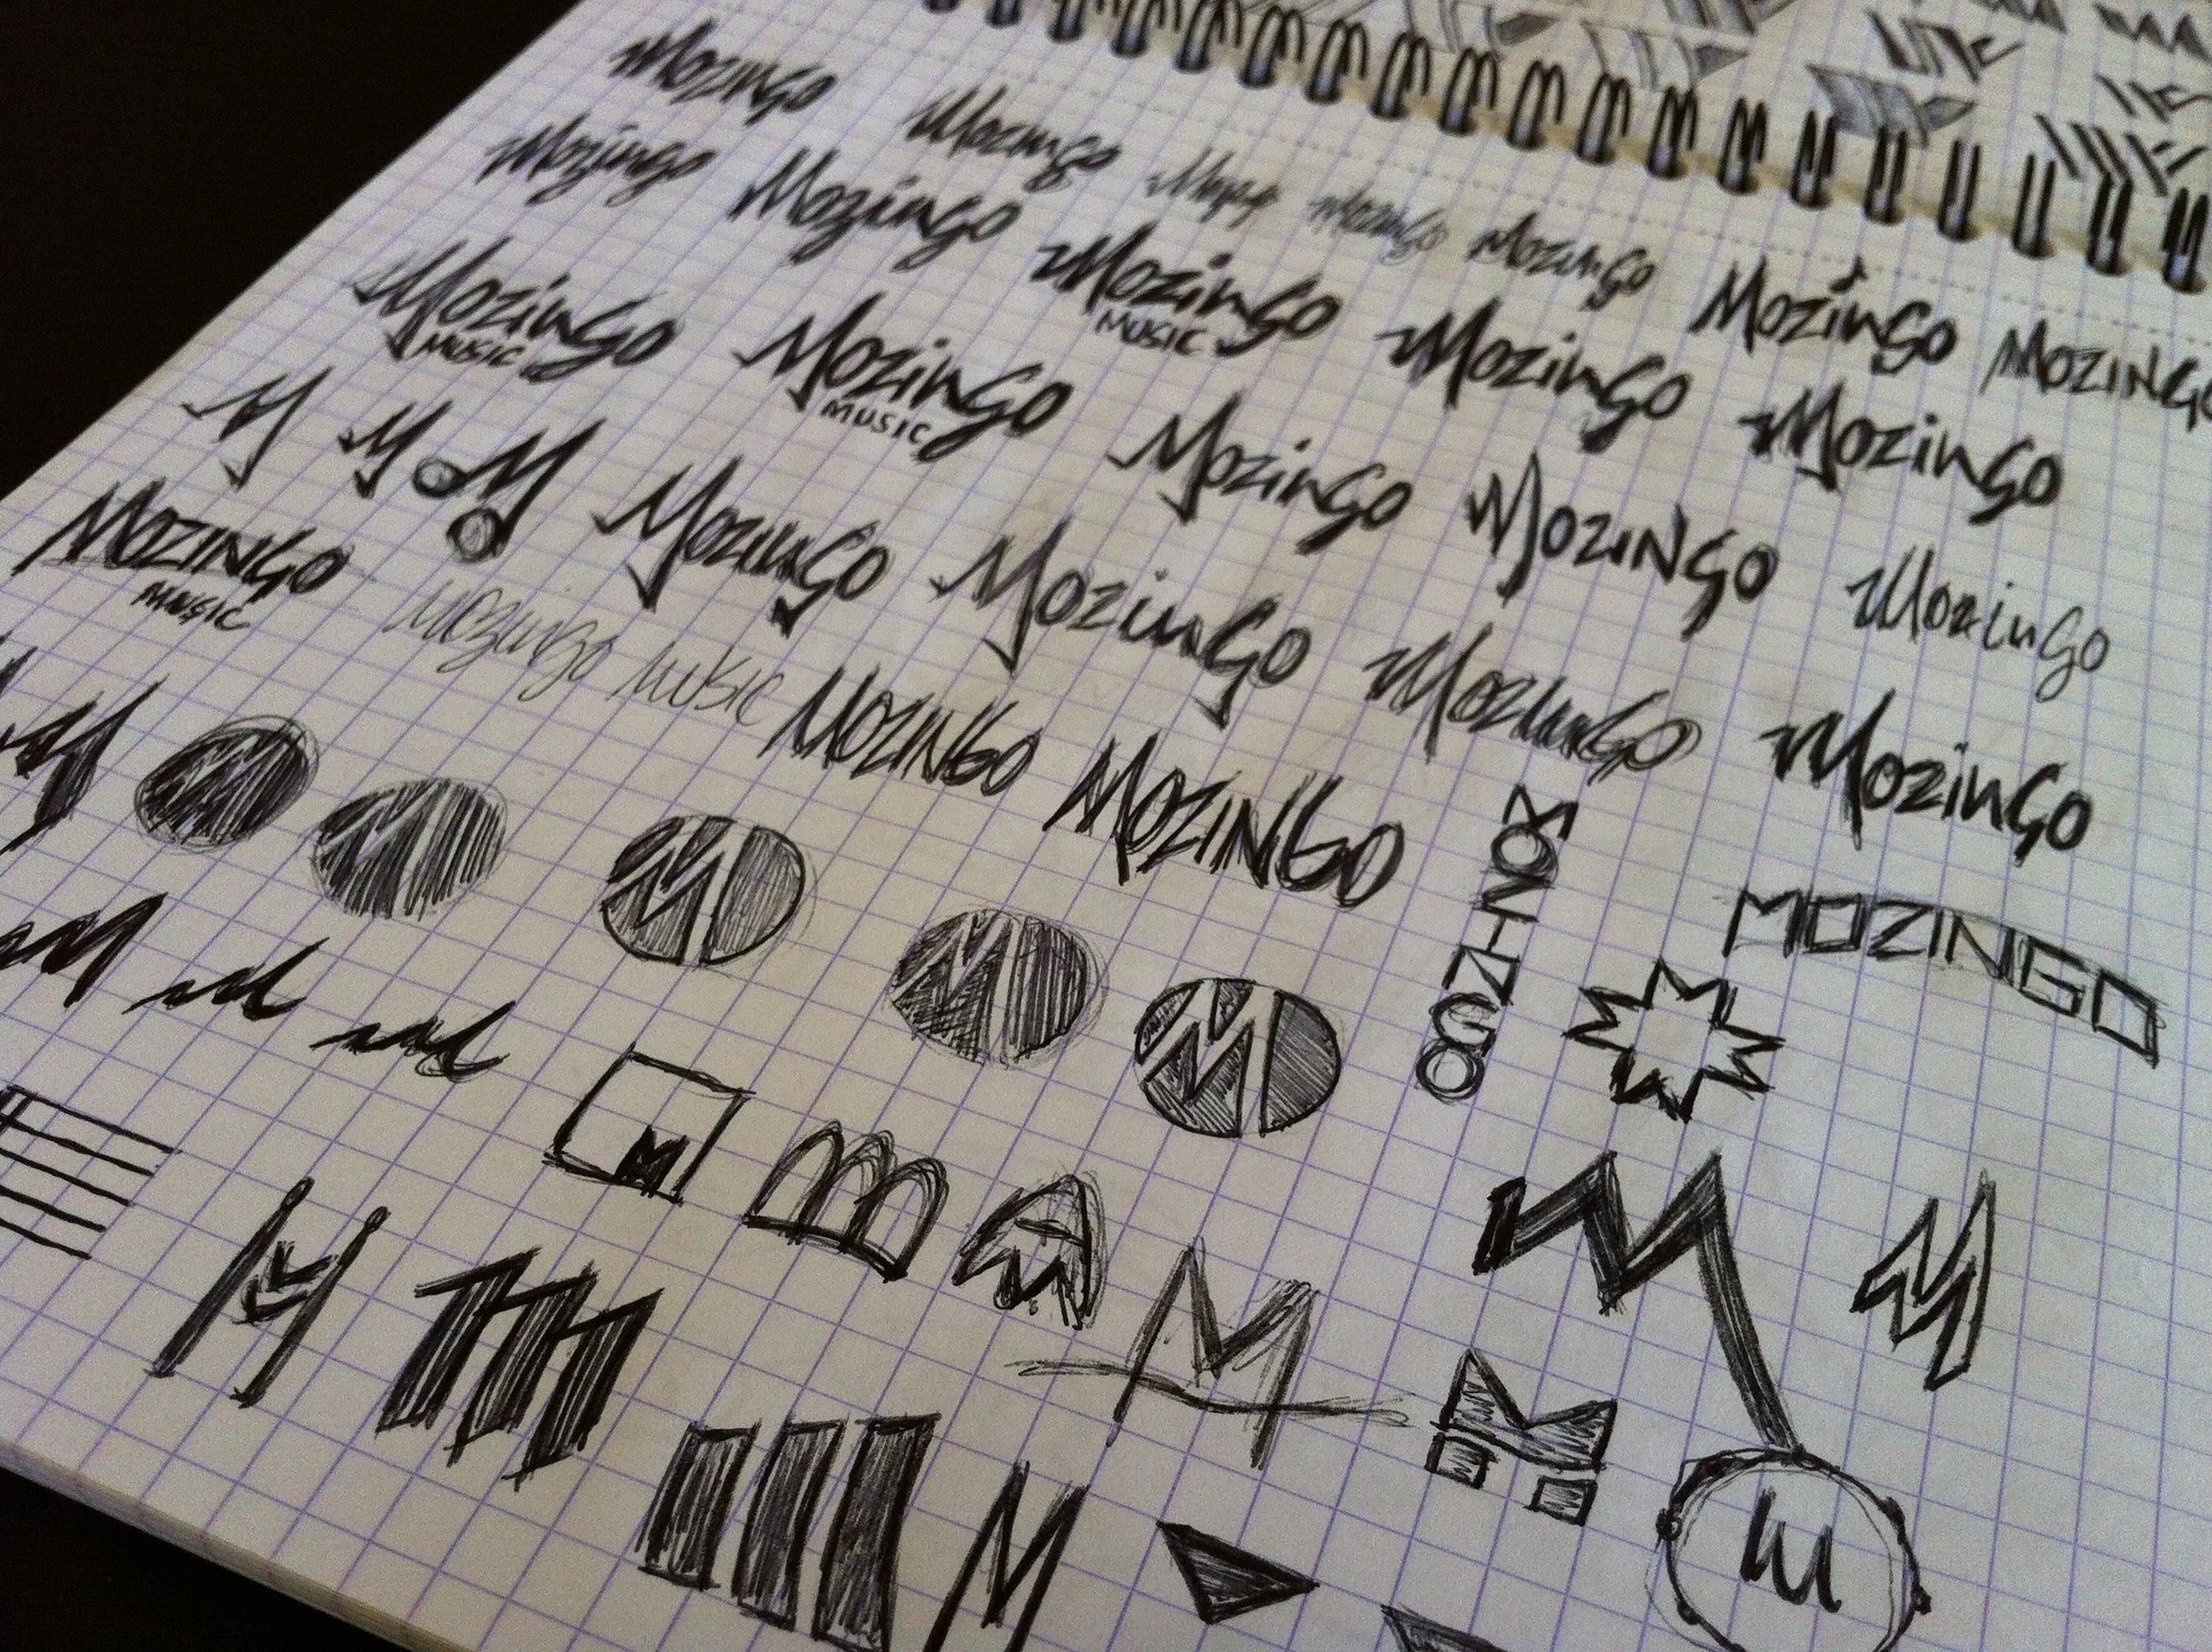 Mozingo
Mozingo Mozingo Mozingo Mozingo Mozingo
Mozingo Mozingo Mozingo Mozingo Mozingo
MUSIC
Mozingo Mozingo Mozingo Mozingo Mozingo
MUSIC MUSIC
M M M Mozingo Mozingo Mozingo Mozingo
MOZINGO
MUSIC
Mozingo MUSIC MOZINGO MOZINGO
M M M M M M
MOZINGO
MOZINGO
M
M M M
M M M
M
M